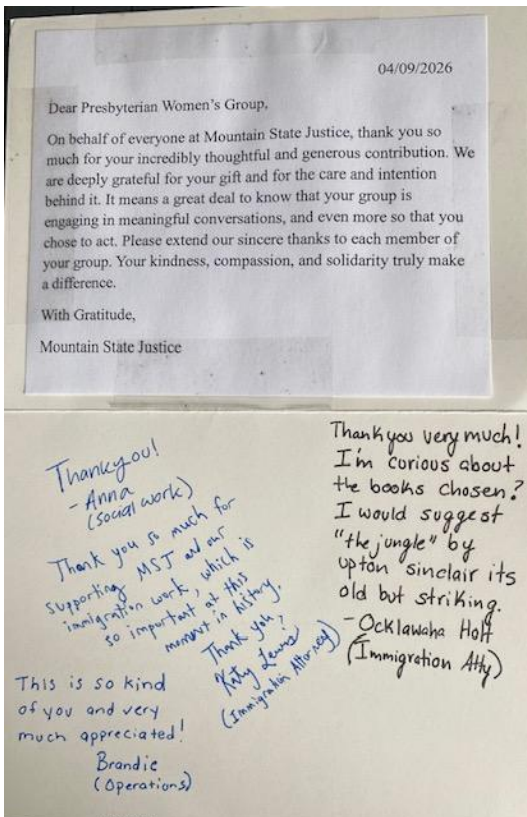 04/09/2026
Dear Presbyterian Women's Group,
On behalf of everyone at Mountain State Justice, thank you so
much for your incredibly thoughtful and generous contribution. We
are deeply grateful for your gift and for the care and intention
behind it. It means a great deal to know that your group is
engaging in meaningful conversations, and even more so that you
chose to act. Please extend our sincere thanks to each member of
your group. Your kindness, compassion, and solidarity truly make
a difference.
With Gratitude,
Mountain State Justice
Thankyou!
- Anna
(social work)
Thank you so much for
supporting MSJ and our
immigration work, which is
so important at this
moment in history.
Thank you,
Katy Lewis
(Immigration Attorney)
This is so kind
of you and very
much appreciated!
Brandie
(Operations)
Thank you very much!
I'm curious about
the books chosen?
I would suggest
"the jungle" by
upton sinclair its
old but striking.
- Ocklawaha Holt
(Immigration Atty)